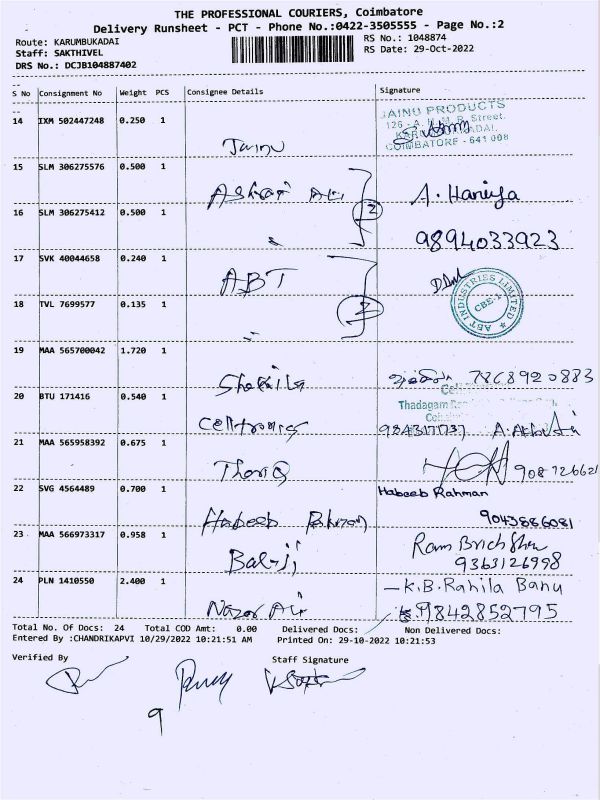 THE PROFESSIONAL COURIERS, Coimbatore
Delivery Runsheet - PCT - Phone No.:0422-3505555 - Page No.:2
Route: KARUMBUKADAI
RS No.: 1048874
Staff: SAKTHIVEL
RS Date: 29-Oct-2022
DRS No.: DCJB104887402
S No Consignment No Weight PCS Consignee Details Signature
14 IXM 502447248 0.250 1
JAINU PRODUCTS
126 - A, Street.
COIMBATORE - 641 008
Jainu
15 SLM 306275576 0.500 1
Ashraf Ali
A. Haniya
16 SLM 306275412 0.500 1
2
9894033923
17 SVK 40044658 0.240 1
ABT
ABT INDUSTRIES LIMITED
CBE-1
18 TVL 7699577 0.135 1
2
19 MAA 565700042 1.720 1
Shakila
7868920883
20 BTU 171416 0.540 1
Thadagam
Celltronics
21 MAA 565958392 0.675 1
Thoriq
22 SVG 4564489 0.700 1
Habeeb Rahman
Habeeb Rahman
9043886081
23 MAA 566973317 0.958 1
Balaji
9363126998
24 PLN 1410550 2.400 1
K.B. Rahila Banu
Nazar Ali
9842852795
Total No. Of Docs: 24 Total COD Amt: 0.00 Delivered Docs: Non Delivered Docs:
Entered By :CHANDRIKAPVI 10/29/2022 10:21:51 AM Printed On: 29-10-2022 10:21:53
Verified By
Staff Signature
9